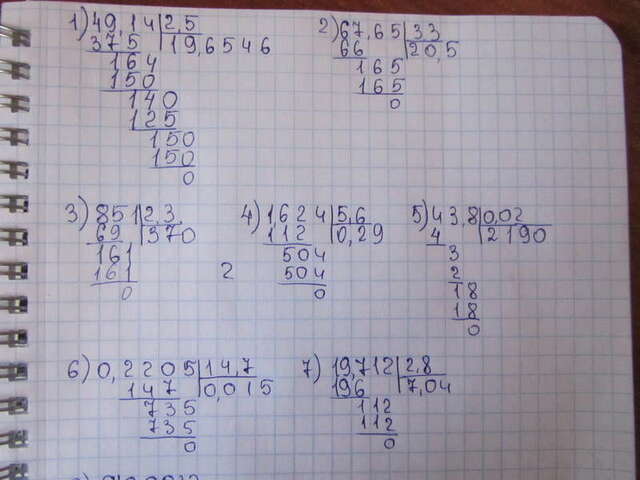 1) 49,14 | 2,5
37 5 | 19,6546
164
150
140
125
150
150
0
2) 67,65 | 33
66 | 20,5
165
165
0
3) 851 | 2,3
69 | 370
161
161
0
2
4) 1624 | 5,6
112 | 0,29
504
504
0
5) 43,8 | 0,02
4 | 2190
3
2
18
18
0
6) 0,2205 | 14,7
147 | 0,015
735
735
0
7) 19,712 | 2,8
196 | 7,04
112
112
0